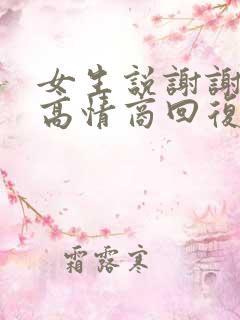 女生説謝謝
高情商回復
霜露寒